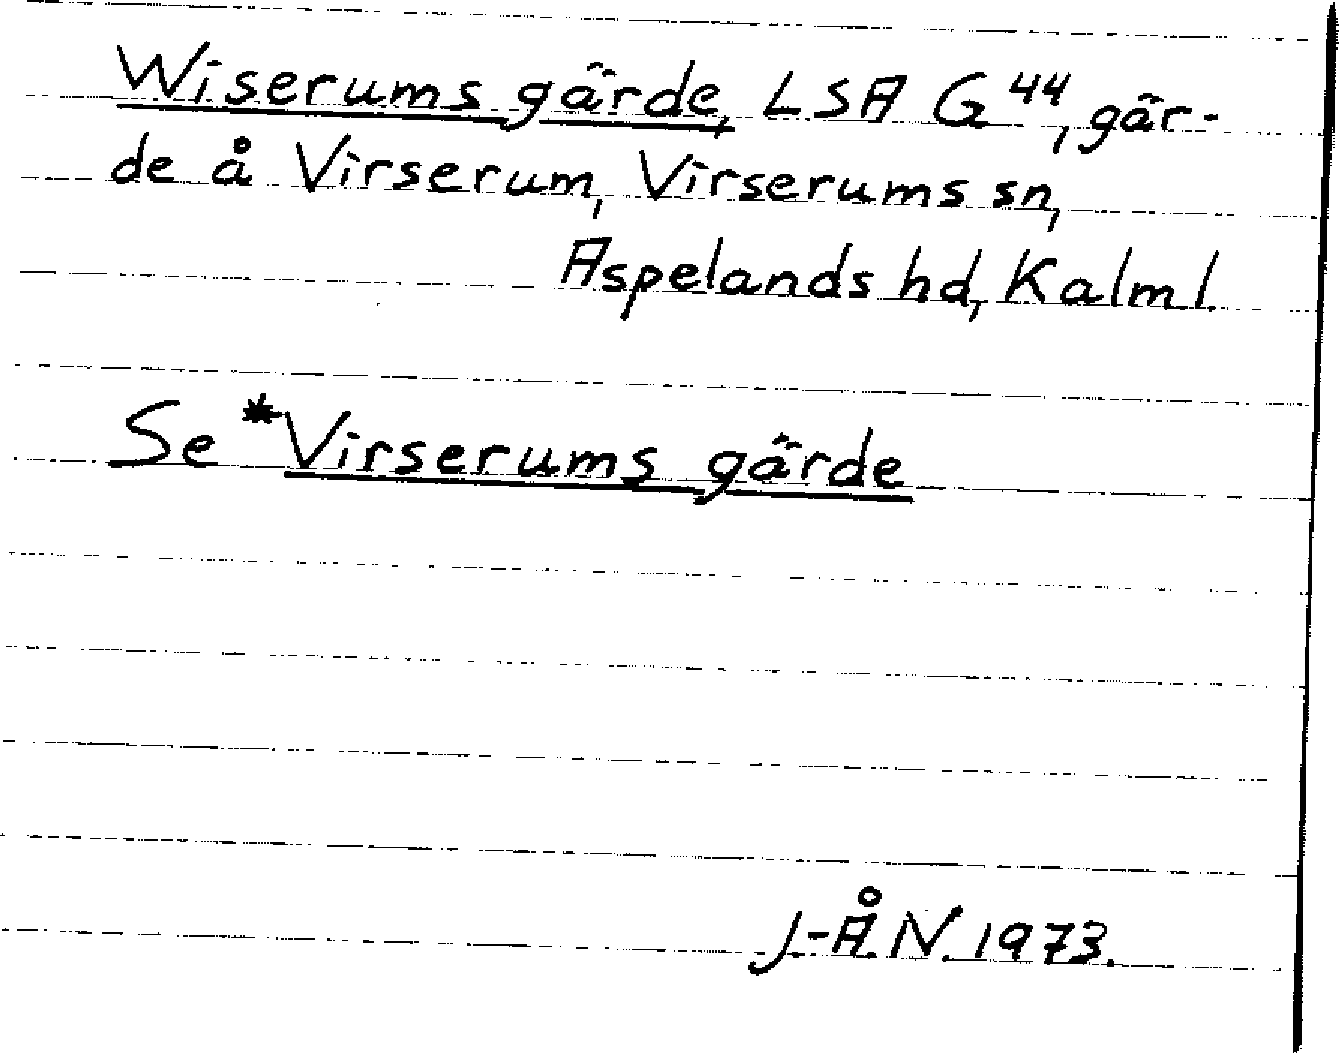 Wiserums gärde, LSA G 44, gär-
de å Virserum, Virserums sn,
Aspelands hd, Kalm l.
Se *Virserums gärde
J-Å.N. 1973.